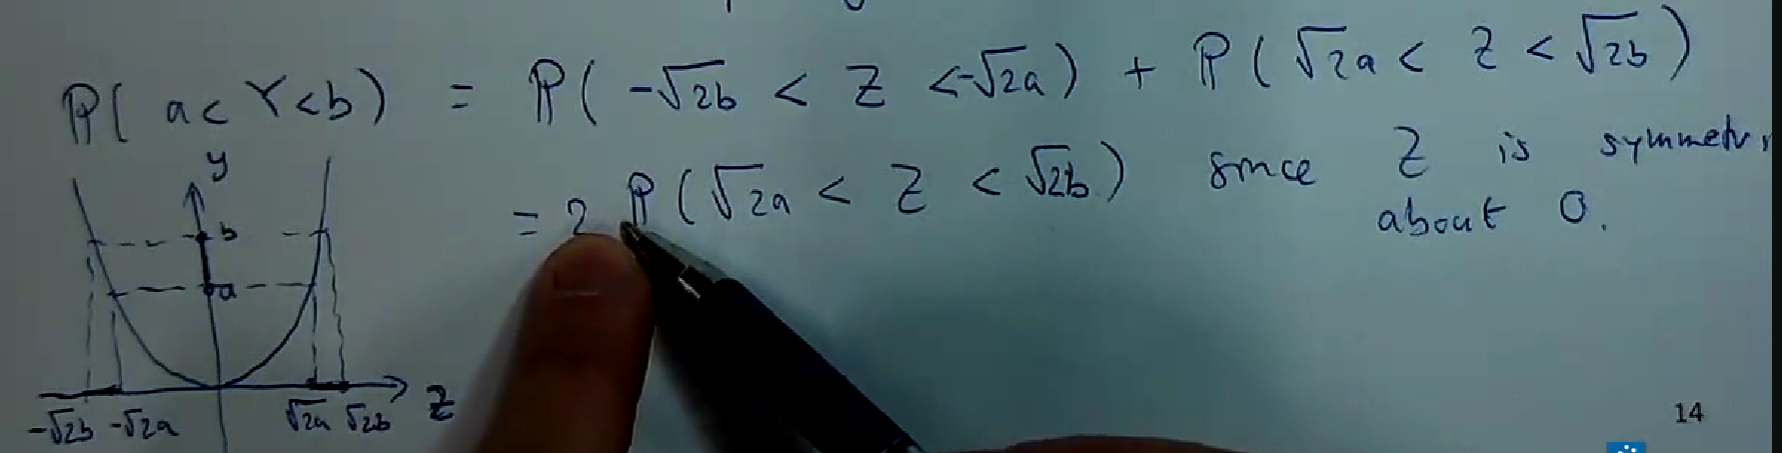 ℙ( a < Y < b ) = ℙ( -√2b < Z < -√2a ) + ℙ( √2a < Z < √2b )
= 2 ℙ( √2a < Z < √2b ) since Z is symmetri
about 0.
y
b
a
-√2b -√2a √2a √2b Z
14